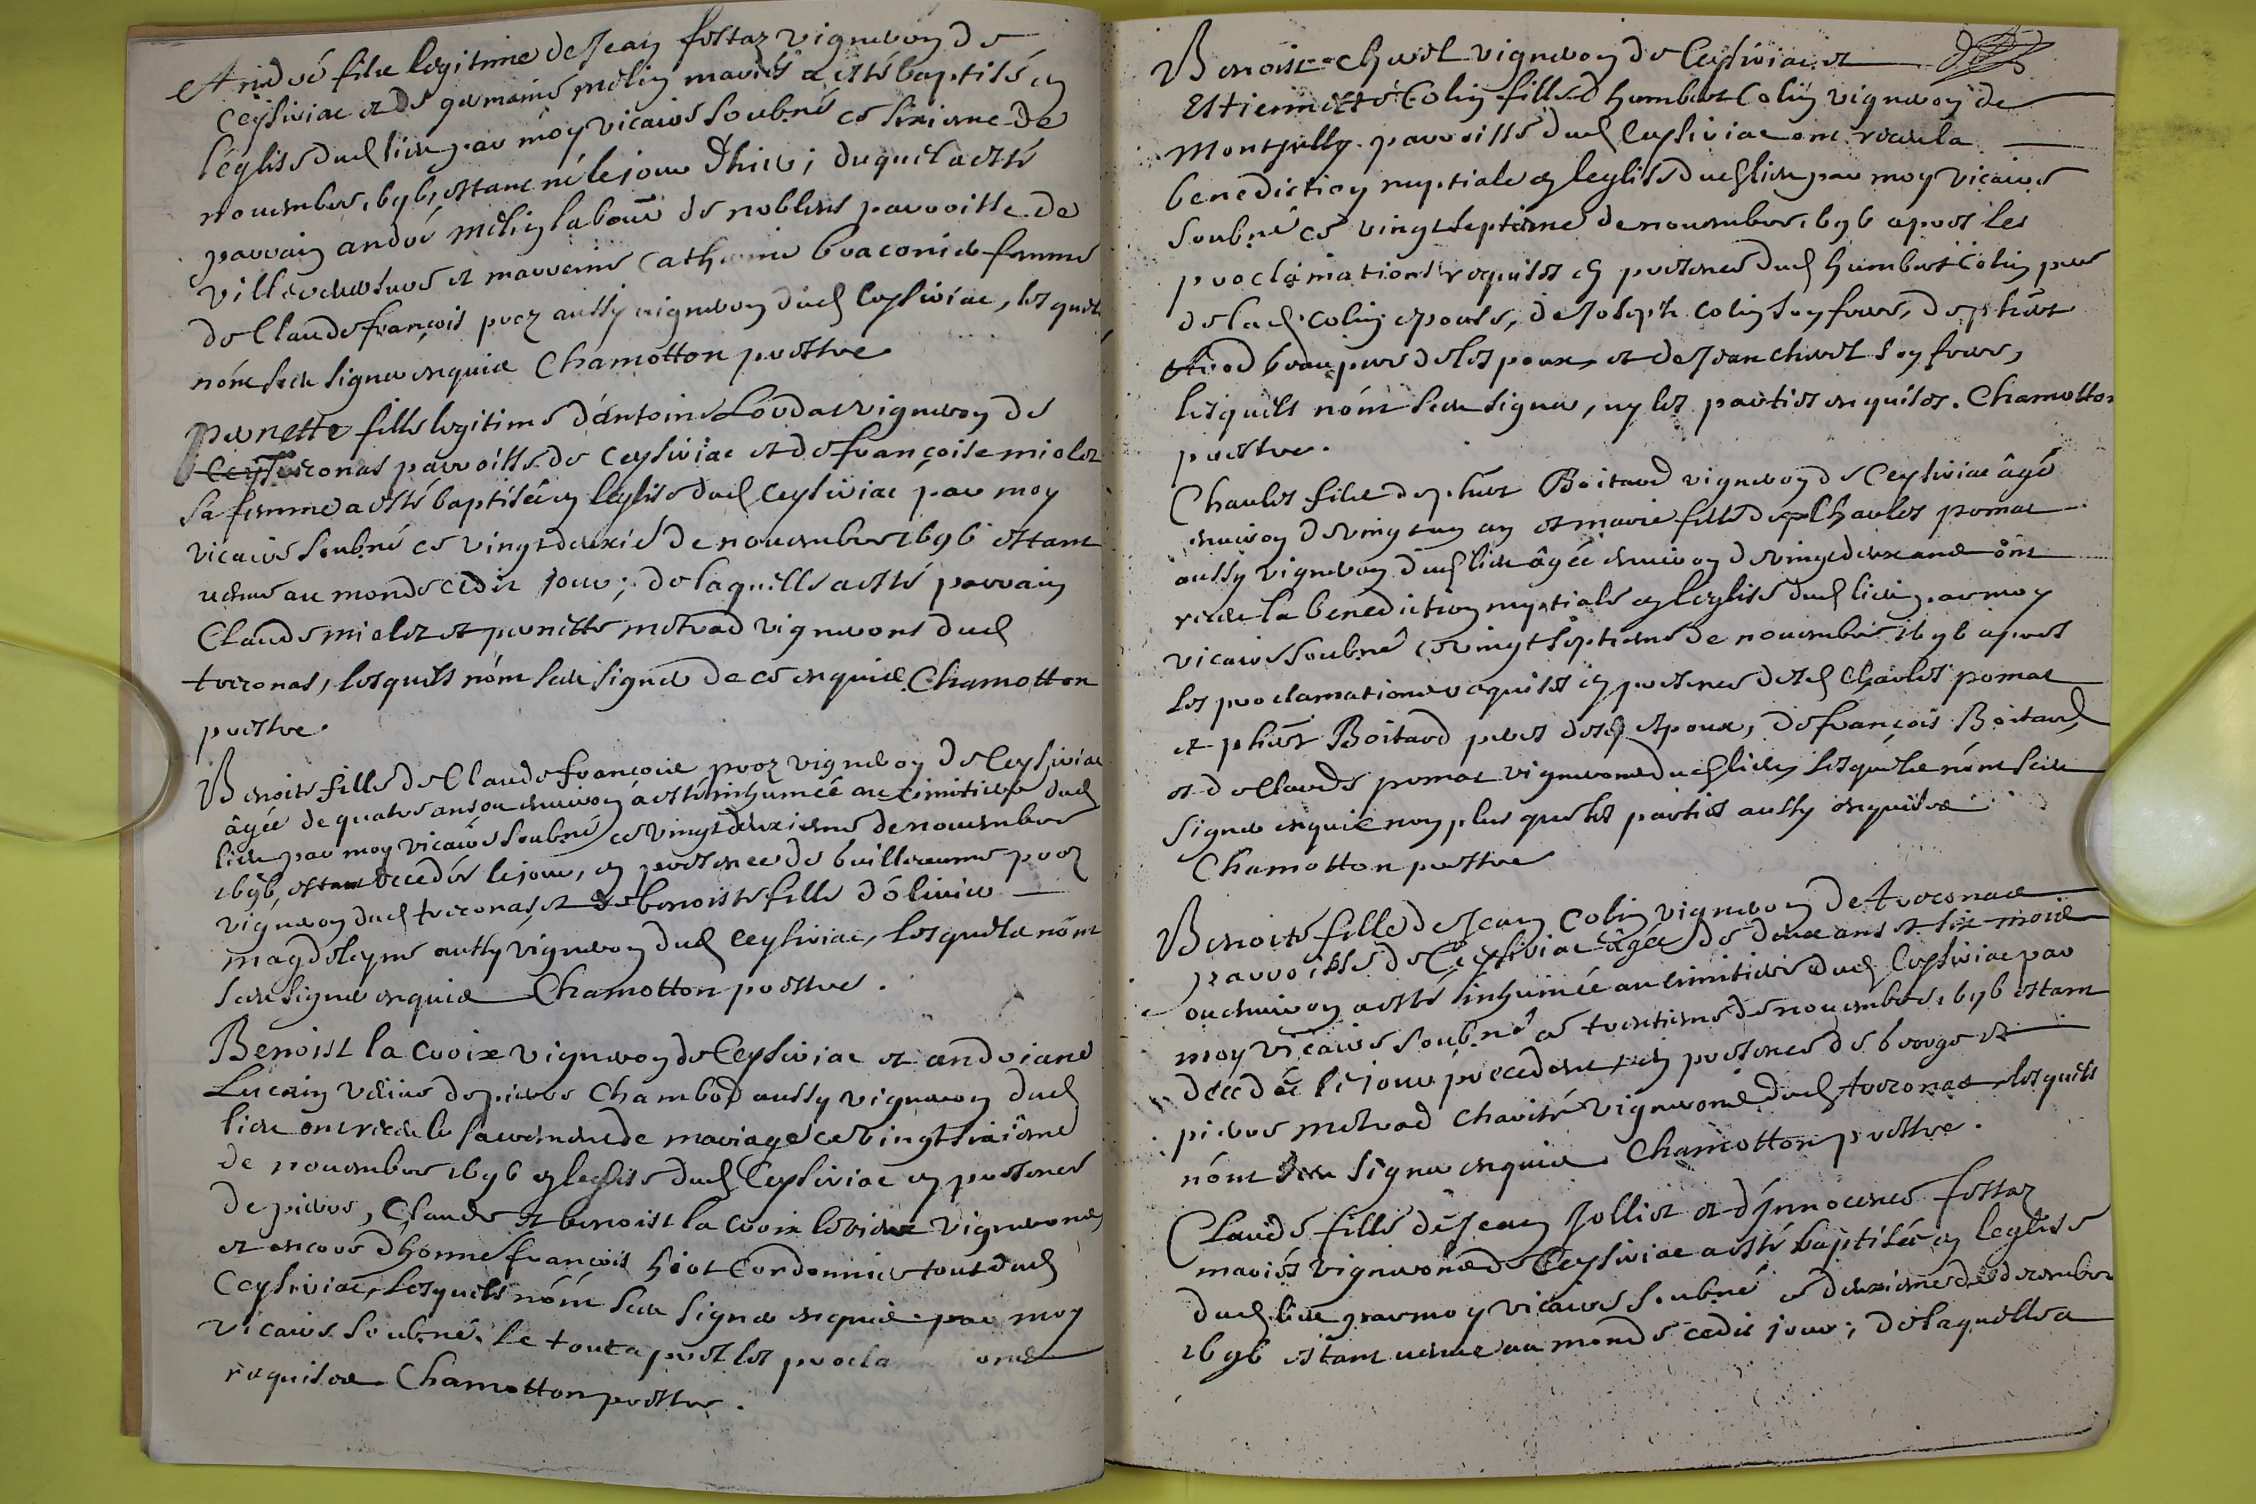 André filz legitime de Jean fostaz vigneron de
Ceyseriac et de germaine mélin mariés a esté baptisé en
l'église dud lieu par moy vicaire soubné ce sixieme de
nouembre 1696, estant né le jour d'hier; duquel a esté
parrain andré mélin de nobles parroisse de
villereversure et marreine Catherine braconier femme
de Claude françois proz aussy vigneron dud Ceyseriac, lesquels
nónt sceu signer enquis Chamotton prestre
pernette fille legitime d'antoine vigneron de
treconas parroisse de Ceyseriac et de françoise miolet
sa femme a esté baptisée en léglise dud Ceyseriac par moy
vicaire soubné ce vingtdeuxié de nouembre 1696 estant
uenue au monde cedit jour; de laquelle a esté parrain
Claude miolet et pernette metrad vignerons dud
treconas, lesquels nónt sceu signer de ce enquis Chamotton
prestre.
Benoite fille de Claude françois proz vigneron de Ceyseriac
âgée de quatre ans ou enuiron a esté inhumée au cimitiere dud
lieu par moy vicaire soubné ce vingtdeuxieme de nouembre
1696, estant decedée le jour, en presence de guillereaume proz
vigneron dud treconas, et de benoiste fille d'oliuier
magdeleyne aussy vigneron dud ceyseriac, lesquels nónt
sceu signer enquis Chamotton prestre.
Benoist la croix vigneron de Ceyseriac et andriane
Lucain veuve de pierre Chambod aussy vigneron dud
lieu ont receu le sacrement de mariage ce vingt sixieme
de nouembre 1696 en leglise dud Ceyseriac en presence
de pierre, Claude et benoist la croix le vieux vignerons
et encore d'honné françois Cordonnier tout dud
Ceyseriac, lesquels nónt sceu signer enquis par moy
vicaire soubné. le tout apres les
requises Chamotton prestre.
Benoist chvet vigneron de Ceyseriac et
Estiennette Colin fille d'humbert Colin vigneron de
Montjully parroisse dud Ceyseriac ont receu la
benediction nuptiale en leglise dud lieu par moy vicaire
soubné ce vingtseptieme de nouembre 1696 apres les
proclamations requises en presence dud humbert Colin pere
de lad Colin epouse, de Joseph Colin son frere, de phirt
beau pere de lespoux, et de Jean chvet son frere,
lesquels nónt sceu signer, ny les parties enquises. Chamotton
prestre.
Charles filz de phirt Boitard vigneron de Ceyseriac âgé
enuiron de vingt cinq an et marie fille de Charles pomat
aussy vigneron dud lieu âgée enuiron de vingtdeux ans ont
receu la benediction nuptiale en leglise dud lieu par moy
vicaire soubné ce vingt septieme de nouembre 1696 apres
les proclamations requises en presence desd Charles pomat
et phirt Boitard peres desd espoux, de françois Boitard,
et de Claude pomat vignerons dud lieu, lesquels nónt sceu
signer enquis non plus que les parties aussy enquises
Chamotton prestre
Benoite fille de Jean Colin vigneron de treconas
parroisse de Ceyseriac âgée de deux ans et six mois
ou enuiron a esté inhumée au cimitiere dud Ceyseriac par
moy vicaire soubné ce trentieme de nouembre 1696 estant
decedée le jour precedent, en presence de george et
pierre metrad charité vignerons dud treconas lesquels
nónt sceu signer enquis Chamotton prestre.
Claude fille de Jean Jolliet et d'Jnnocence fostaz
mariés vignerons de Ceyseriac a esté baptisée en leglise
dud lieu par moy vicaire soubné ce deuxieme de decembre
1696 estant uenue au monde cedit jour; de laquelle a